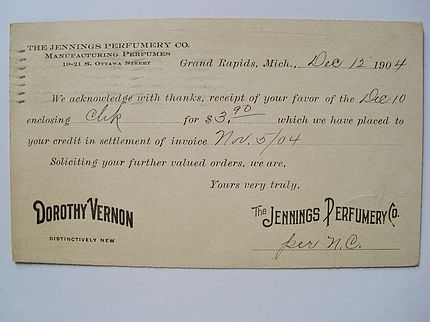 THE JENNINGS PERFUMERY CO.
MANUFACTURING PERFUMES
19-21 S. OTTAWA STREET
Grand Rapids, Mich., Dec 12 1904
We acknowledge with thanks, receipt of your favor of the Dec 10
enclosing Chk for $3.90 which we have placed to
your credit in settlement of invoice Nov. 5/04
Soliciting your further valued orders, we are,
Yours very truly,
DOROTHY VERNON
DISTINCTIVELY NEW
The JENNINGS PERFUMERY Co.
per N.C.